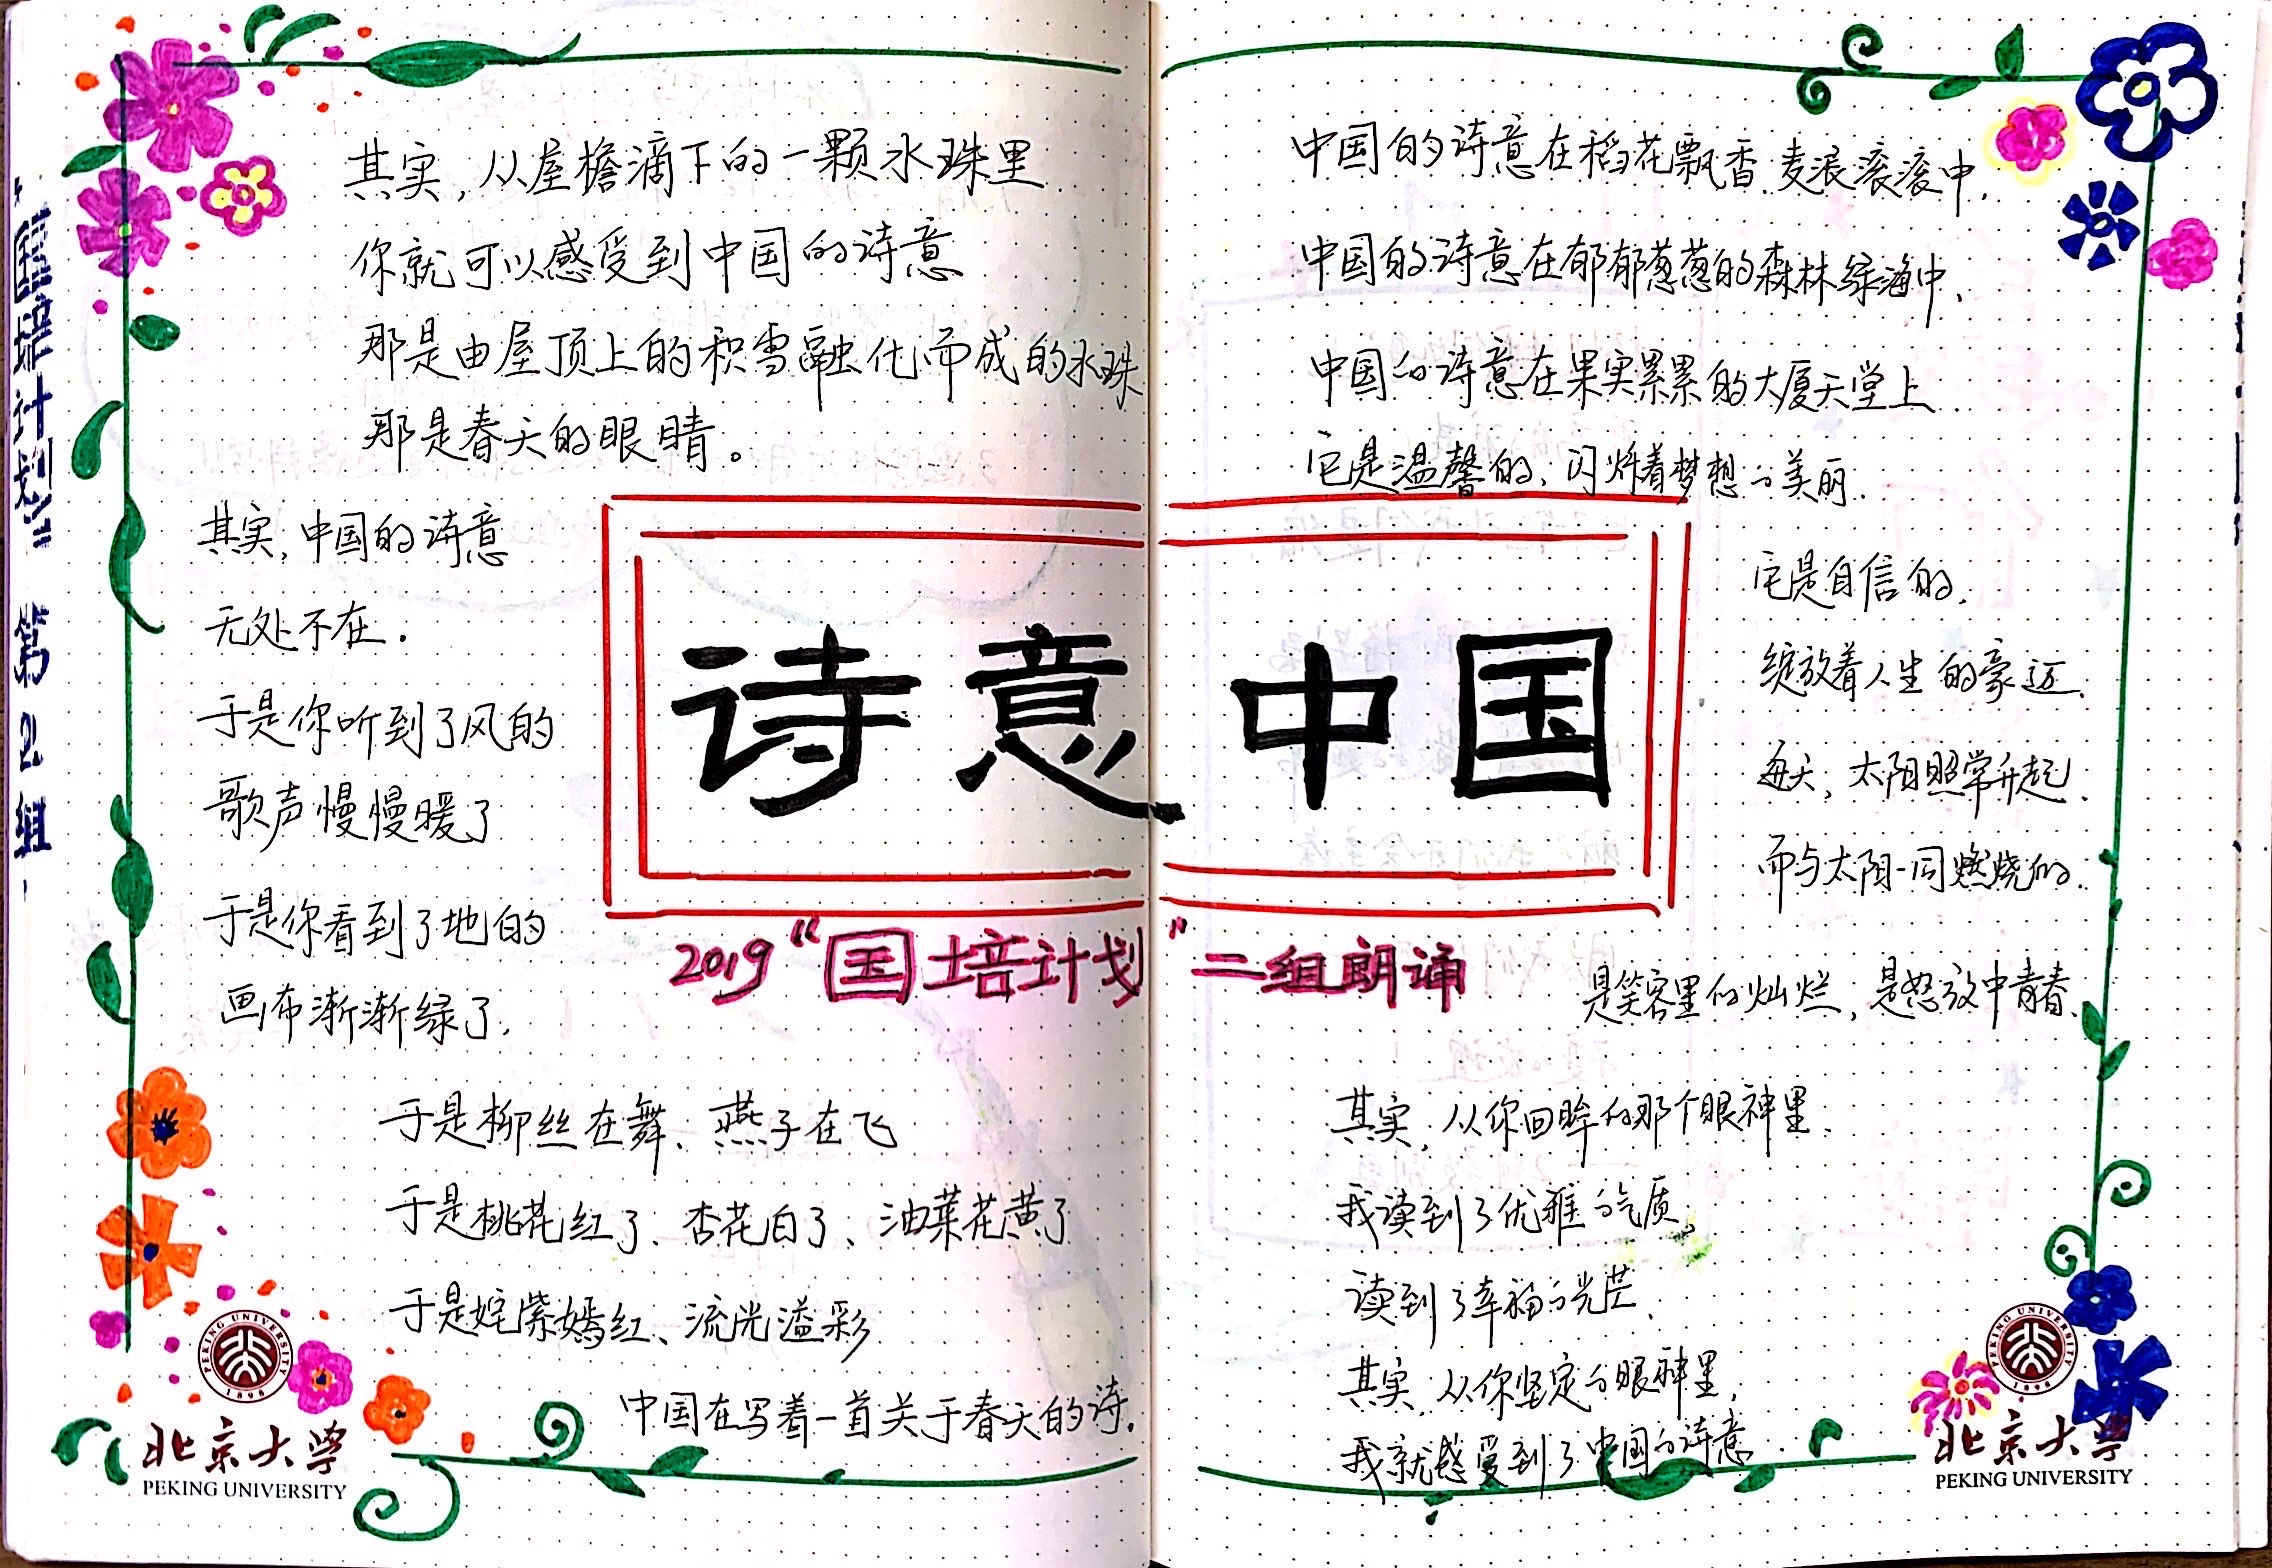 其实,从屋檐滴下的一颗水珠里
你就可以感受到中国的诗意
那是由屋顶上的积雪融化而成的水珠
那是春天的眼睛。
其实,中国的诗意
无处不在.
于是你听到了风的
歌声慢慢暖了
于是你看到了地的
画布渐渐绿了,
于是柳丝在舞、燕子在飞
于是桃花红了、杏花白了、油菜花黄了
于是姹紫嫣红、流光溢彩
中国在写着一首关于春天的诗.
诗意中国
2019“国培计划”二组朗诵
中国的诗意在稻花飘香.麦浪滚滚中,
中国的诗意在郁郁葱葱的森林绿海中、
中国的诗意在果实累累的大厦天堂上
它是温馨的、闪烁着梦想的美丽.
它是自信的,
绽放着人生的豪迈.
每天,太阳照常升起.
而与太阳一同燃烧的.
是笑容里的灿烂,是怒放中青春.
其实,从你回眸的那个眼神里.
我读到了优雅的气质,
读到了幸福的光芒、
其实,从你坚定的眼神里,
我就感受到了中国的诗意
“国培计划” 第2组
PEKING UNIVERSITY
1898
北京大学
PEKING UNIVERSITY
PEKING UNIVERSITY
1898
北京大学
PEKING UNIVERSITY